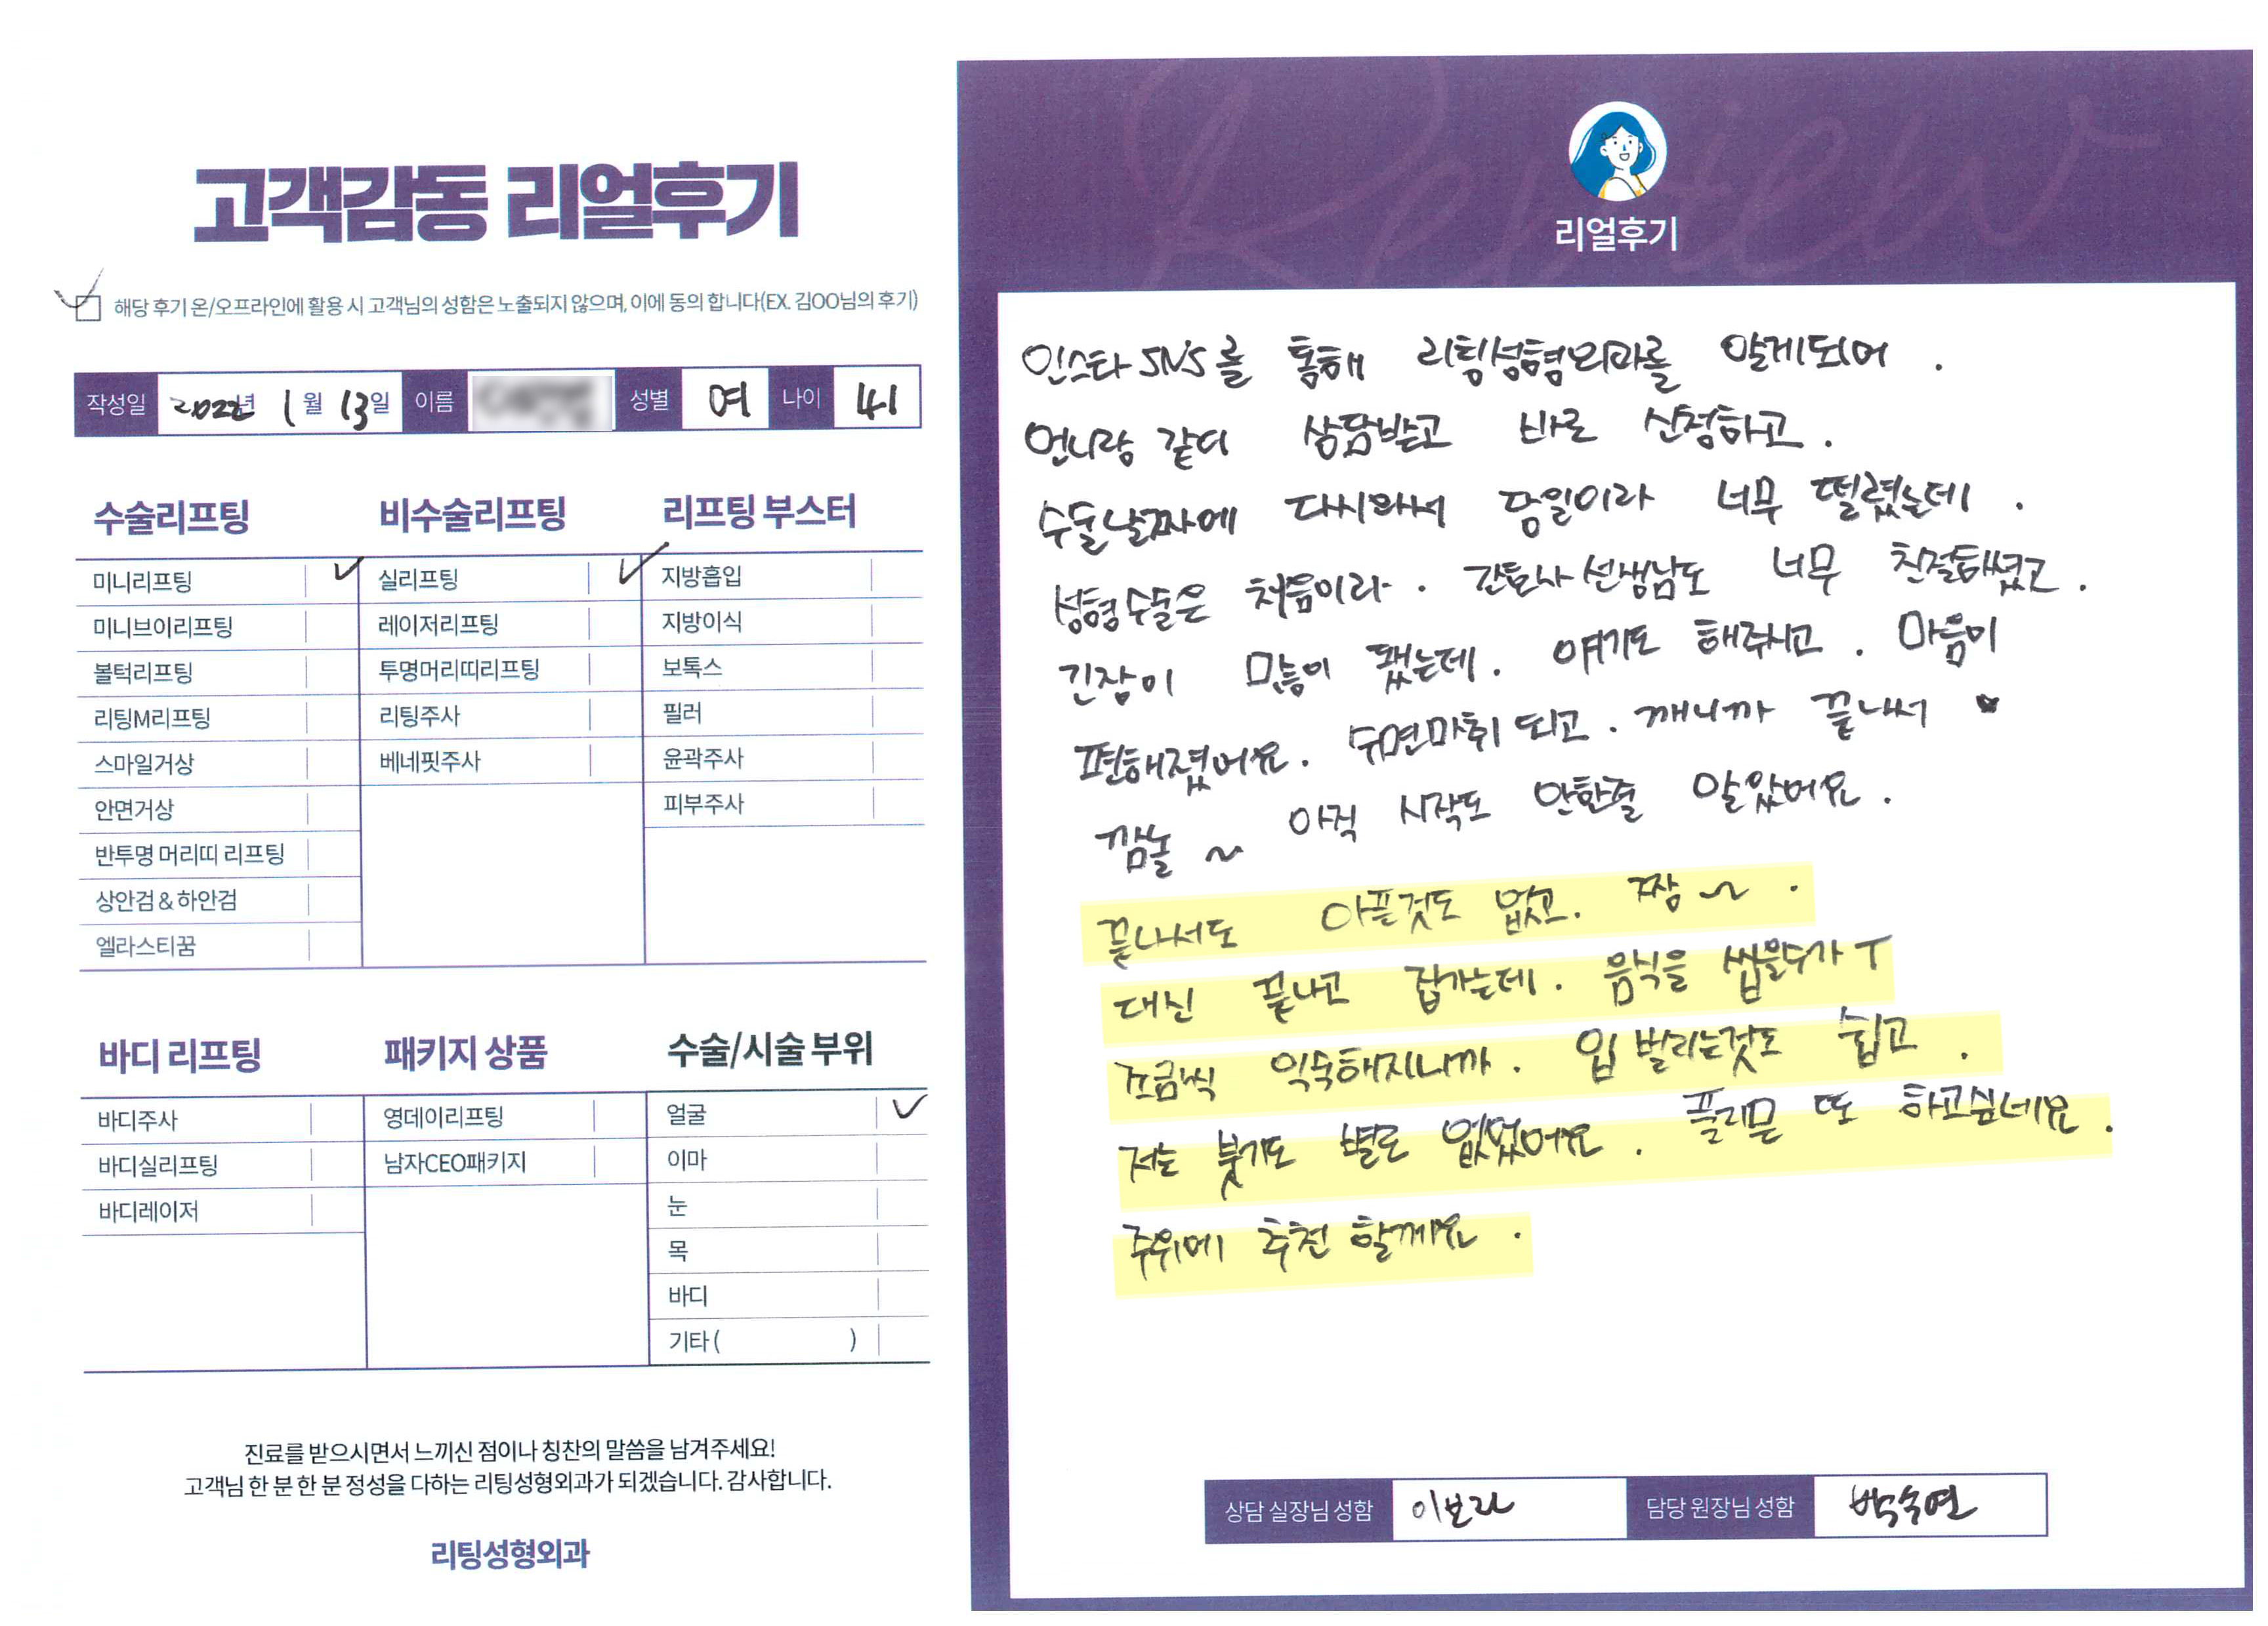 고객감동 리얼후기
해당 후기 온/오프라인에 활용 시 고객님의 성함은 노출되지 않으며, 이에 동의 합니다(EX. 김OO님의 후기)
작성일 2022년 1월 13일 이름 성별 여 나이 41
수술리프팅
미니리프팅 ✓
미니브이리프팅
볼턱리프팅
리팅M리프팅
스마일거상
안면거상
반투명 머리띠 리프팅
상안검 & 하안검
엘라스티꿈
비수술리프팅
실리프팅 ✓
레이저리프팅
투명머리띠리프팅
리팅주사
베네핏주사
리프팅 부스터
지방흡입
지방이식
보톡스
필러
윤곽주사
피부주사
바디 리프팅
바디주사
바디실리프팅
바디레이저
패키지 상품
영데이리프팅
남자CEO패키지
수술/시술 부위
얼굴 ✓
이마
눈
목
바디
기타 ( )
진료를 받으시면서 느끼신 점이나 칭찬의 말씀을 남겨주세요!
고객님 한 분 한 분 정성을 다하는 리팅성형외과가 되겠습니다. 감사합니다.
리팅성형외과
Review
리얼후기
인스타 SNS를 통해 리팅성형외과를 알게되어.
언니랑 같이 상담받고 바로 신청하고.
수술날짜에 다시와서 당일이라 너무 떨렸는데.
성형수술은 처음이라. 간호사 선생님도 너무 친절하셨고.
긴장이 많이 됐는데. 얘기도 해주시고. 마음이
편해졌어요. 수면마취 되고. 깨니까 끝나서
깜놀 ~ 아직 시작도 안한줄 알았어요.
끝나서도 아픈것도 없고. 짱 ~.
대신 끝나고 집가는데. 음식을 씹을수가 ㅜ
조금씩 익숙해지니까. 입 벌리는것도 쉽고.
저는 붓기도 별로 없었어요. 풀리면 또 하고싶네요.
주위에 추천 할께요.
상담 실장님 성함 이보라 담당 원장님 성함 박숙연